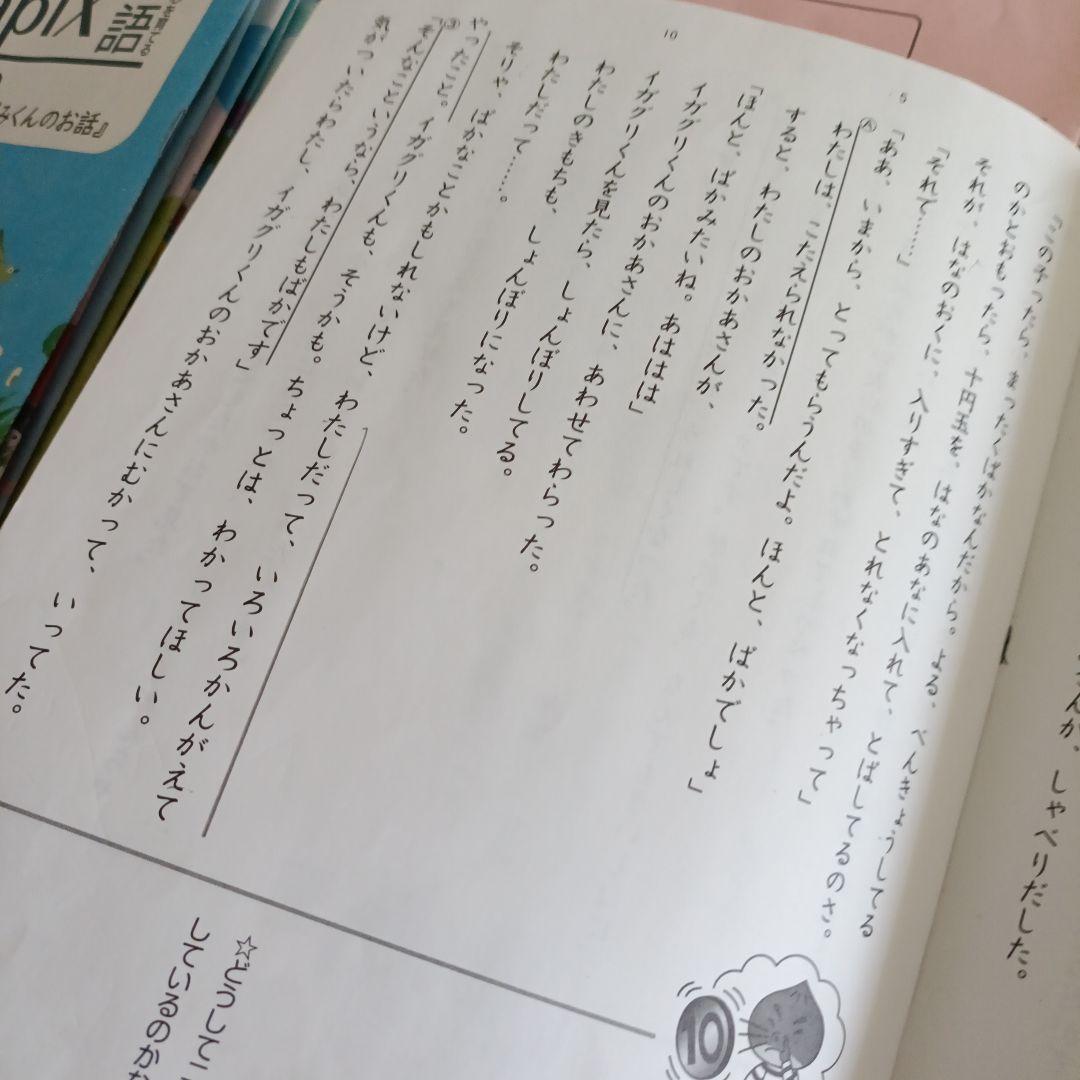 さんが、しゃべりだした。
「この子ったら、まったくばかなんだから。よる、べんきょうしてる
のかとおもったら、十円玉を、はなのあなに入れて、とばしてるのさ。
それが、はなのおくに、入りすぎて、とれなくなっちゃって」
「それで………」
「ああ、いまから、とってもらうんだよ。ほんと、ばかでしょ」
Ⓐ
わたしは、こたえられなかった。
すると、わたしのおかあさんが、
「ほんと、ばかみたいね。あははは」
イガグリくんのおかあさんに、あわせてわらった。
イガグリくんを見たら、しょんぼりしてる。
わたしのきもちも、しょんぼりになった。
わたしだって……。
そりゃ、ばかなことかもしれないけど、わたしだって、いろいろかんがえて
やったこと。イガグリくんも、そうかも。ちょっとは、わかってほしい。
③
「そんなこというなら、わたしもばかです」
気がついたらわたし、イガグリくんのおかあさんにむかって、いってた。
5
10
☆どうしてこ
しているのかな
10
pix
語
みくんのお話』